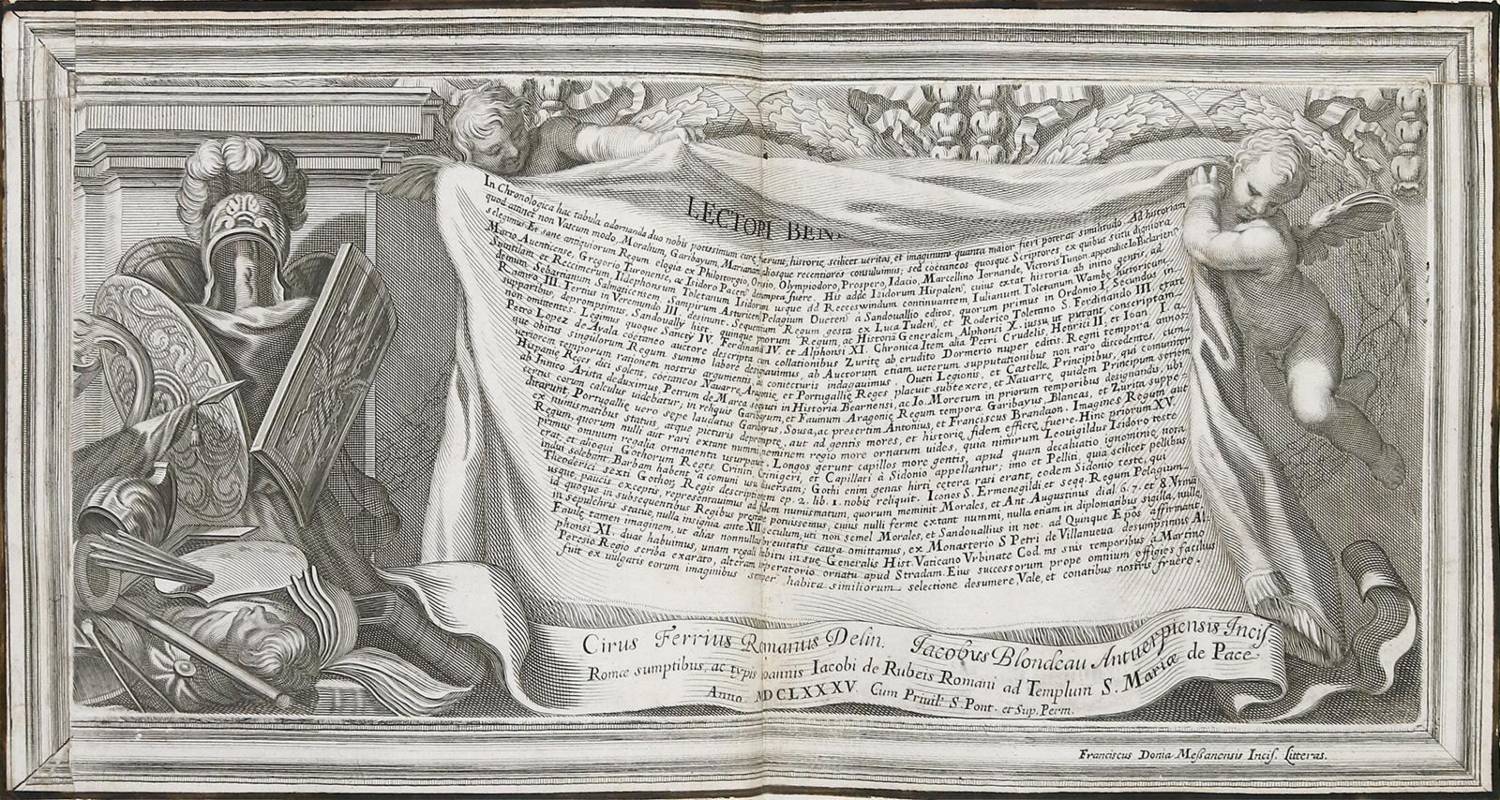 LECTORI BEN
In Chronologica hac tabula adornanda duo nobis potissimum curæ fuerunt, historiæ scilicet veritas, et imaginum quanta maior fieri poterat similitudo. Ad historiam
quod attinet non Vasæum modo, Moralium, Garibayum, Marianam, aliosque recentiores consuluimus; sed coetaneos quosque Scriptores, ex quibus scitu digniora
selegimus. Et sane antiquiorum Regum elogia ex Philostorgio, Orosio, Olympiodoro, Prospero, Idacio, Marcellino Iornande, Victoris Tunon. appendice Io. Biclarien.
Mario Auenticense, Gregorio Turonense, ac Isidoro Pacen. desumpta fuere. His adde Isidorum Hispalen. cuius extat historia ab initio gentis, ad
Suintilam et Reccimerum, Ildephonsum Toletanum Isidorum usque ad Recceswindum continuantem, Iulianum Toletanum Wambæ historicum,
deinde, Sebastianum Salmanticensem Sampirum Asturicen. Pelagium Oueten. à Sandouallio editos, quorum primus in Ordonio I. Secundus in
Ramiro III. Tertius in Veremundo III. desinunt. Sequentium Regum gesta ex Luca Tuden, et Roderico Toletano S. Ferdinando III. ferè
supparibus, deprompsimus, Sandoually hist. quinque priorum Regum, ac Historia Generalem Alphonsi X. iussu ut putant, conscriptam
non omittentes. Legimus quoque Sancty IV. Ferdinandi IV. et Alphonsi XI. Chronica Item alia Petri Crudelis, Henrici II, et Ioan. I, a,
Petro Lopez de Ayala coetaneo auctore descripta cum collationibus Zuritæ ab erudito Dormerio nuper editis. Regni tempora annos:
que obitus singulorum Regum summo labore denotauimus, ab Auctorum etiam veterum supputationibus non raro discedentes, cum
veriorem temporum rationem nostris argumentis, coniecturis indagauimus. Oueti Legionis, et Castellæ Principibus, qui communiter
Hispaniæ Reges dici solent, coetaneos Nauarræ, Aragoniæ, et Portugalliæ Reges placuit subtexere, et Nauarræ quidem Principum seriem
ab Inico Arista deduximus, Petrum de Marca sequuti in Historia Bearnensi, ac Io. Moretum in priorum temporibus designandis, ubi
certus eorum calculus uidebatur; in reliquis Garibayum, et Fauinum Aragoniæ Regum tempora Garibayus Blancas, et Zurita suppe-
ditarunt, Portugalliæ vero sæpe laudatus Garibayus, Sousa, ac præsertim Antonius, et Franciscus Brandaon. Imagines Regum aut
ex numismatibus statuis, atque picturis deprompte, aut ad gentis mores, et historiæ fidem effictæ fuere. Hinc priorum XV.
Regum, quorum nulli aut rari extant nummi, neminem regio more ornatum uides, quia nimirum Leouigildus Isidoro teste
primus omnium regalia ornamenta usurpauit. Longos gerunt capillos more gentis, apud quam decaluatio ignominiæ nota
erat, et alioqui Gothorum Reges Criniti Crinigeri, et Capillati à Sidonio appellantur; imo et Pelliti, quia scilicet pellibus
indui solebant. Barbam habent à comuni usu diuersam; Gothi enim genas hirti cetera rasi erant, eodem Sidonio teste, qui
Theoderici sexti Gothor. Regis descriptionem ep. 2. lib. 1. nobis reliquit. Icones S. Ermenegildi, et seqq. Regum Pelagium
usque, paucis exceptis, representauimus ad fidem numismatum, quorum meminit Morales, et Ant. Augustinus dial. 6. 7. et 8. Vnū
id quoque in subsequentibus Regibus præstare potuissemus, cuius nulli ferme extant nummi, nulla etiam in diplomatibus sigilla, nullæ
in sepulchris statuæ, nulla insignia ante XII seculum, uti non semel Morales, et Sandouallius in not. ad Quinque Epōs affirmant.
Fauilæ tamen imaginem, ut alias nonnullas breuitatis causa omittamus, ex Monasterio S. Petri de Villanueua desumpsimus. Al
phonsi XI. duas habuimus, unam regali habitu in suæ Generalis Hist. Vaticano Vrbinate Cod. ms suis temporibus à Martino
Peresio Regio scriba exarato, alteram imperatorio ornatu apud Stradam. Eius successorum prope omnium effigies facilius
fuit ex uulgatis eorum imaginibus semper habita similiorum selectione desumere. Vale, et conatibus nostris fruere.
Cirus Ferrius Romanus Delin. Iacobus Blondeau Antuerpiensis Incis
Romæ sumptibus, ac typis Ioannis Iacobi de Rubeis Romani ad Templum S. Mariæ de Pace
Anno MDCLXXXV. Cum Priuil. S. Pont. et Sup. Perm.
Franciscus Donia Meßanensis Incis. Litteras.